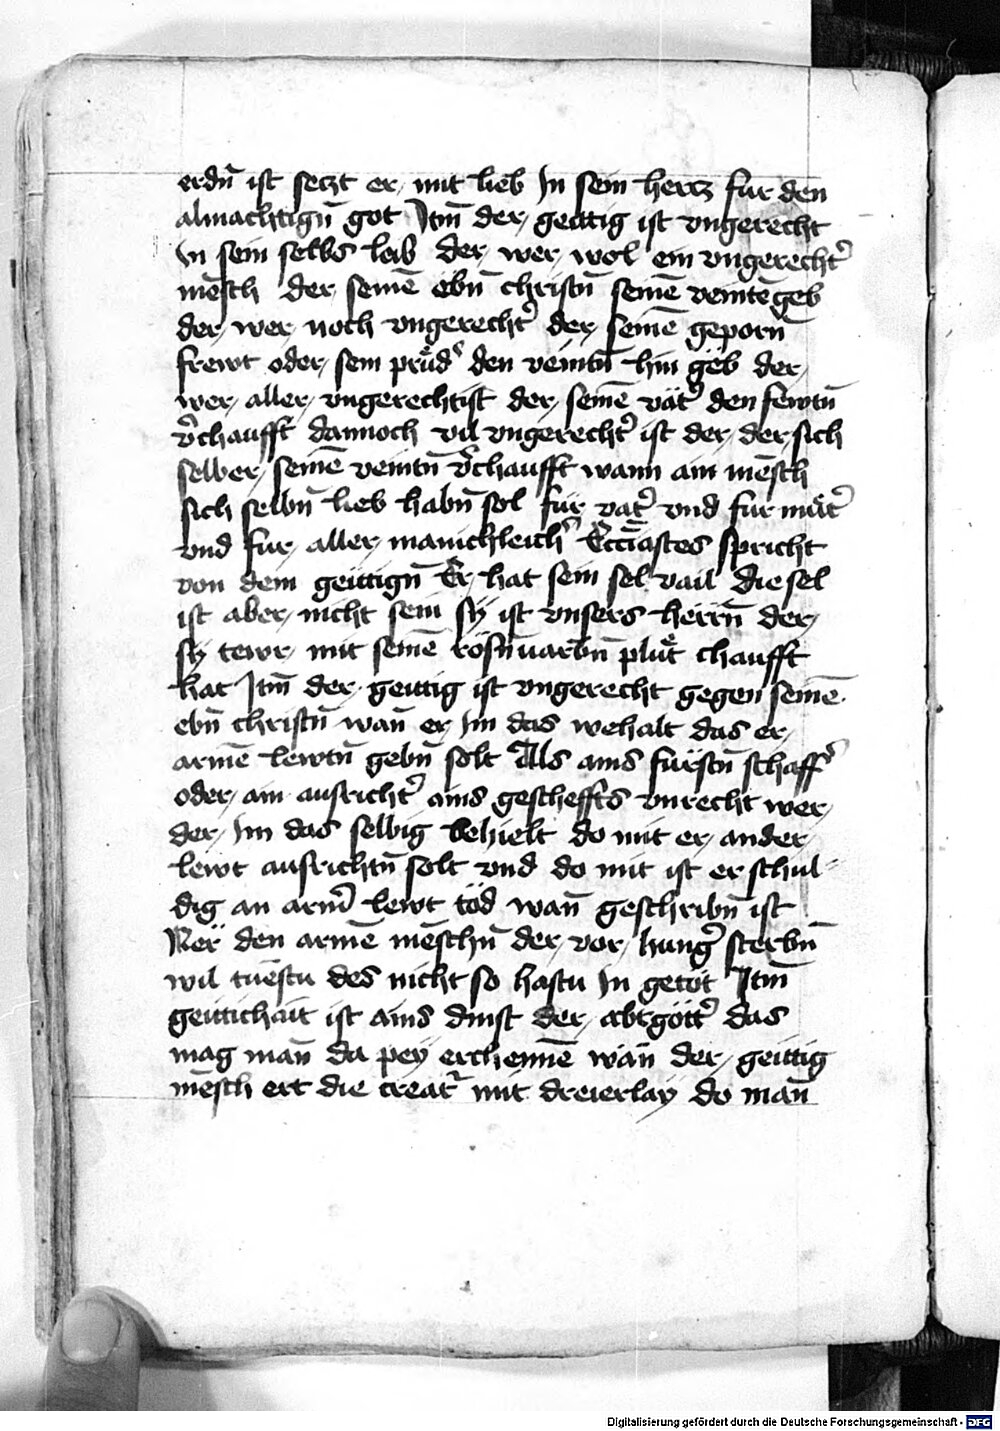 erdn̄ ist seczt er mit lieb In sein hercz fur den
almachtign̄ got Itm̄ der geittig ist vngerecht
In sein selbs leib der wer wol ein vngerecht̉
mēsch der seinē ebn̄ christn̄ seinē veintē geb
der wer noch vngerecht̉ der seinē geporn̄
frewt oder sein průd̉ den veintn̄ hin gëb der
wer aller vngerechtist der seinē vät̉ den fewtn̄
v̉chaufft dannoch vil vngerecht̉ ist der der sich
selber seinē veintn̄ v̉chaufft wann ain mēsch
sich selbn̄ lieb habn̄ sol fur vat̉ vnd fur můt̉
vnd fur aller manichleich̉ Eccc̄iastes spricht
von dem geittign̄ Er hat sein sel vail die sel
ist aber nicht sein sÿ ist vnsers herrn̄ der
sÿ tewr mit seinē rosn̄uarbn̄ plůt chaufft
hat Itm̄ der geittig ist vngerecht gegen seinē
ebn̄ christn̄ wan̄ er im das wehalt das er
armē lewtn̄ gebn̄ solt Als ains fürstn̄ schaff̉
oder ain ausricht̉ ains gescheffts vnrecht wer
der im das selbig behielt do mit er ander
lewt ausrichtn̄ solt vnd do mit ist er schul-
dig an arm̉ lewt töd wan̄ geschribn̄ ist
Ner den armē mēschn̄ der vor hung̉ sterbn̄
wil tuestu des nicht so hastu In getöt Itm̄
geittichait ist ains dinst der abtgött̉ das
mag man̄ da peÿ erchennē wan̄ der geittig
mēsch ert die creat̉ mit dreierlaÿ do man̄
Digitalisierung gefördert durch die Deutsche Forschungsgemeinschaft - DFG